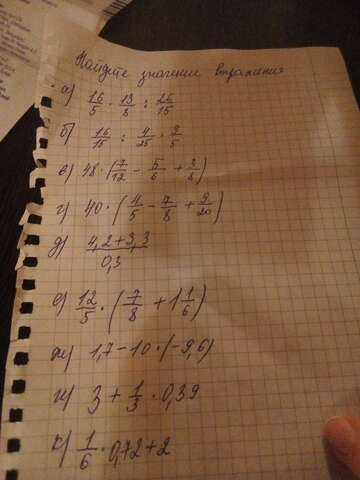 Найдите значение выражения
а) 16/5 · 13/8 : 26/15
б) 16/15 : 4/25 · 9/5
в) 48 · (7/12 - 5/6 + 3/8)
г) 40 · (4/5 - 7/8 + 9/20)
д) 4,2+3,3 / 0,3
е) 12/5 · (7/8 + 1 1/6)
ж) 1,7-10 · (-9,6)
и) 3 + 1/3 · 0,39
к) 1/6 · 0,72+2